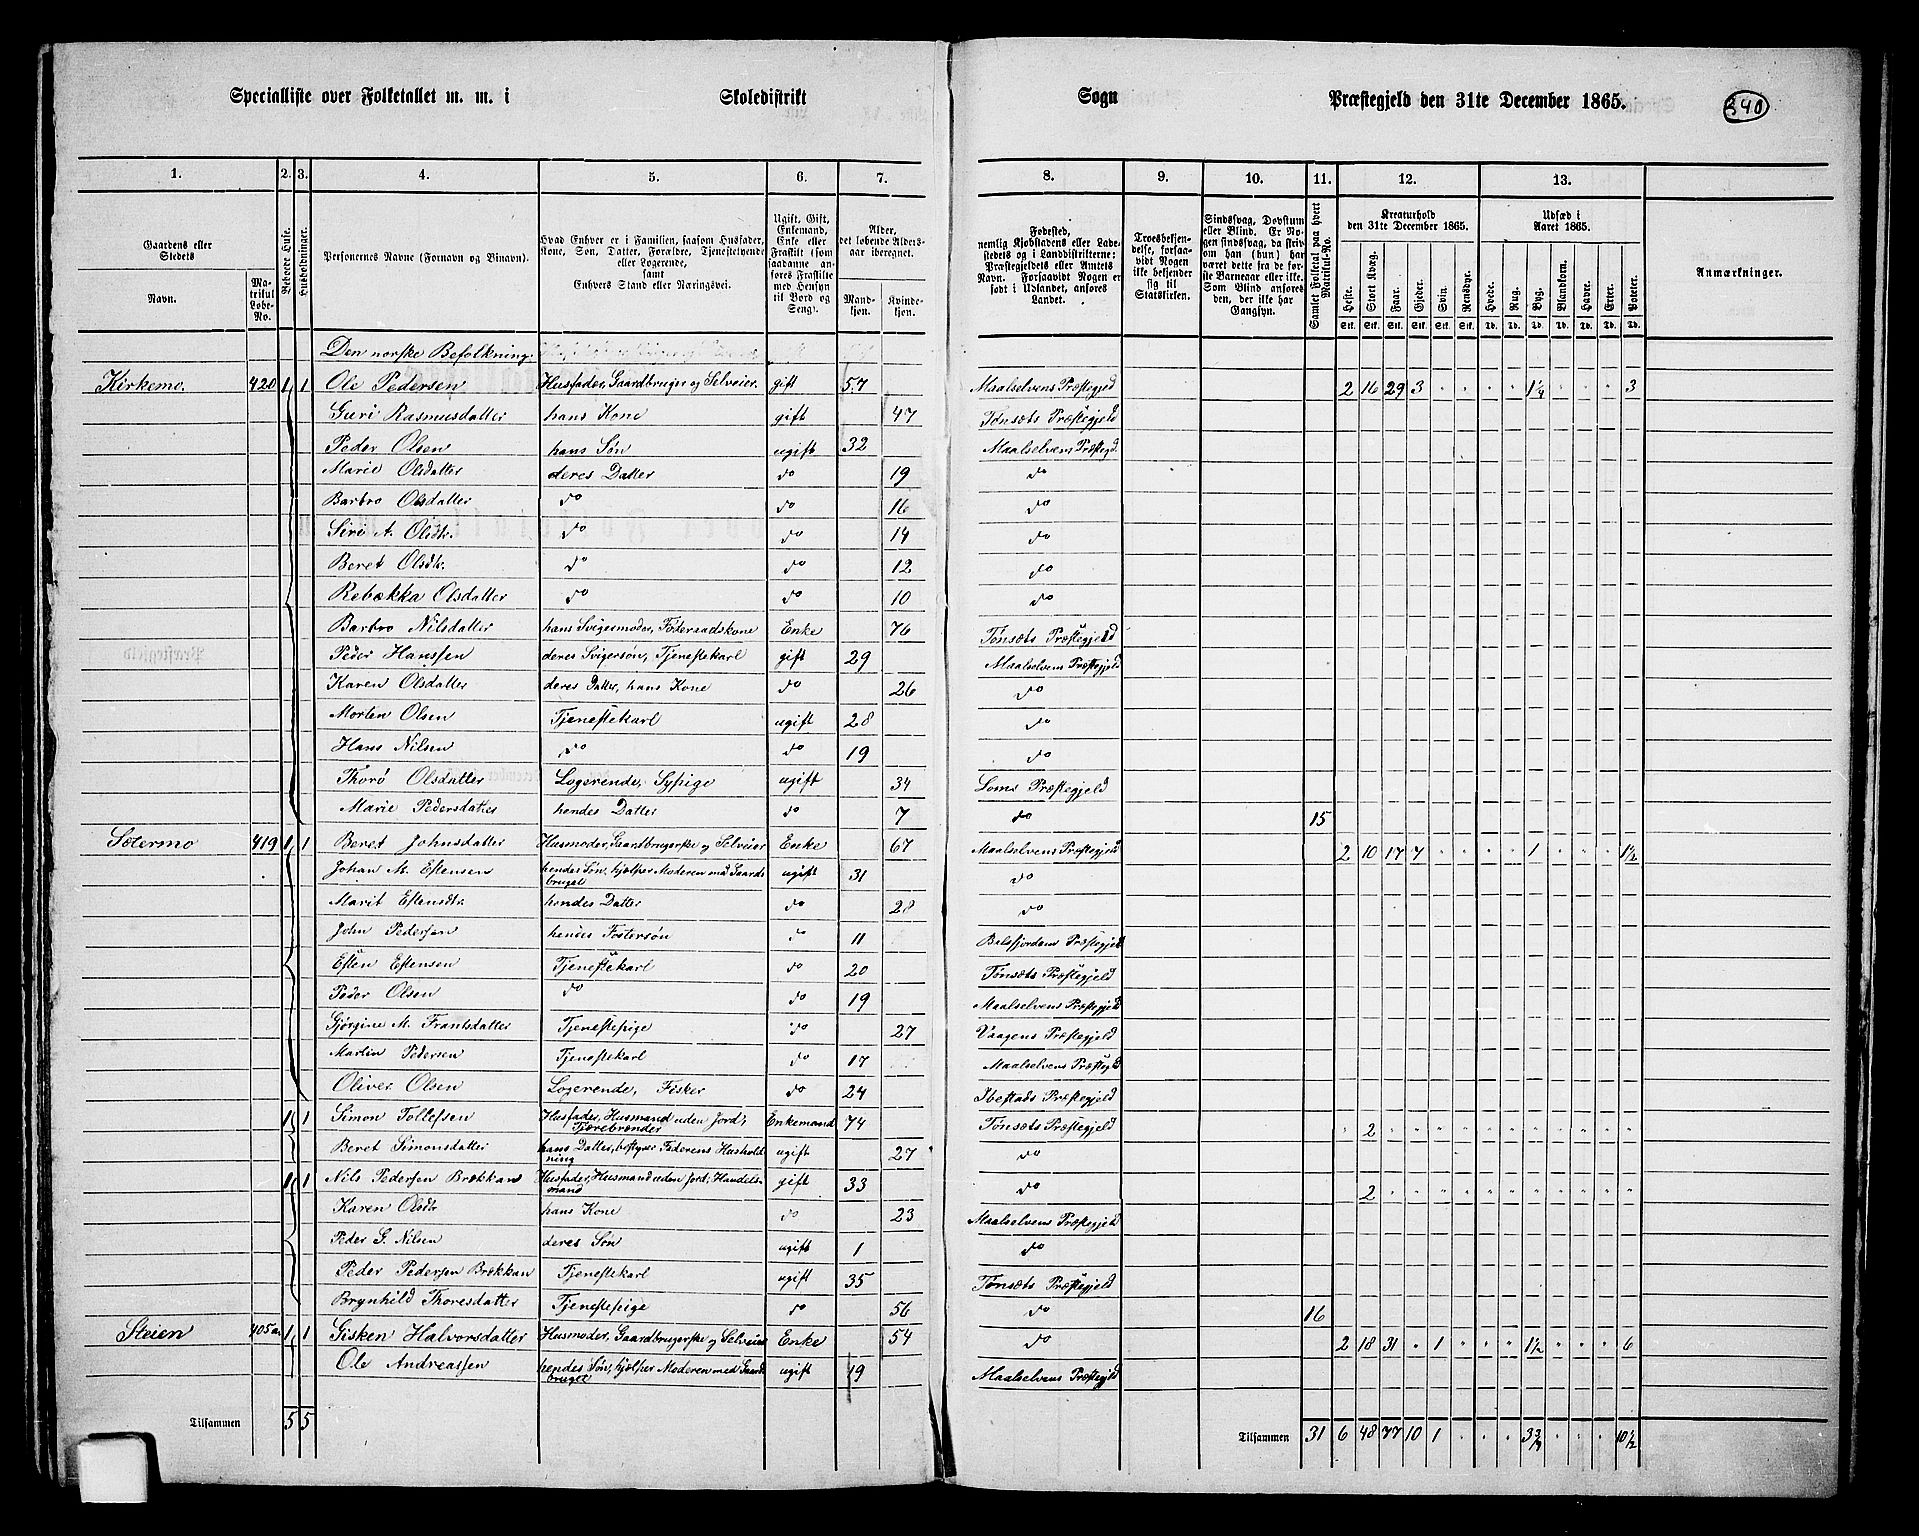 Specialliste over Folketallet m. m. i Skoledistrikt Sogn Præstegjeld den 31te December 1865. 340
1. 2. 3. 4. 5. 6. 7. 8. 9. 10. 11. 12. 13.
Gaardens eller Stedets Navn. Matrikul Løbe-No. Beboede Huse. Husholdninger. Personernes Navne (Fornavn og Binavn). Hvad Enhver er i Familien, saasom Husfader, Kone, Søn, Datter, Forældre, Tjenestetyende eller Logerende, samt Enhvers Stand eller Næringsvei. Ugift, Gift, Enkemand, Enke eller Fraskilt (som saadanne anføres Fraskilte med Hensyn til Bord og Seng). Alder, det løbende Aldersaar iberegnet. Mandkjøn. Kvindekjøn. Fødested, nemlig Kjøbstadens eller Ladestedets og i Landdistrikterne: Præstegjeldets eller Amtets Navn. Forsaavidt Nogen er født i Udlandet, anføres Landet. Troesbekjendelse, forsaavidt Nogen ikke bekjender sig til Statskirken. Sindssvag, Døvstum eller Blind. Er Nogen sindssvag, da skriv om han (hun) har været dette fra de første Barneaar eller ikke. Som Blind anføres den, der ikke har Gangsyn. Samlet Folketal paa hvert Matrikul-No. Kreaturhold den 31te December 1865. Heste. Stort Kvæg. Faar. Gjeder. Svin. Rensdyr. Udsæd i Aaret 1865. Hvede. Rug. Byg. Blandkorn. Havre. Erter. Poteter. Anmærkninger.
Den norske Befolkning.
Kirkemo. 420 1 1 Ole Pedersen Husfader, Gaardbruger og Selveier. gift 57 Maalselvens Præstegjeld 2 16 29 3 " " " " 1¼ " " " 3
Guri Rasmusdatter hans Kone gift 47 Tønsæts Præstegjeld
Peder Olsen hans Søn ugift 32 Maalselvens Præstegjd
Marie Olsdatter deres Datter do 19 do
Barbro Olsdatter do do 16 do
Siri A. Olsdtr. do do 14 do
Beret Olsdtr. do do 12 do
Rebækka Olsdatter do do 10 do
Barbro Nilsdatter hans Svigermoder, Føderaadskone Enke 76 Tønsæts Præstegjeld
Peder Hanssen deres Svigersøn, Tjenestekarl gift 29 Maalselvens Præstegjeld
Karen Olsdatter deres Datter, hans Kone do 26 do
Morten Olsen Tjenestekarl ugift 28 do
Hans Nilsen do do 19 do
Thorø Olsdatter Logerende, Sypige ugift 34 Loms Præstegjeld
Marie Pedersdatter hendes Datter do 7 do 15
Sætermo 419 1 1 Beret Johnsdatter Husmoder, Gaardbrugerske og Selveier Enke 67 Maalselvens Præstegjeld 2 10 17 7 " " " " 1 " " " 1½
Johan M. Estensen hendes Søn, hjælper Moderen med Gaardsbruget ugift 31 do
Marit Estensdtr. hendes Datter do 28 do
John Pedersen hendes Fostersøn do 11 Balsfjordens Præstegjeld
Esten Estensen Tjenestekarl do 20 Tønsæts Præstegjeld
Peder Olsen do do 19 Maalselvens Præstegjeld
Gjørgine M. Frantsdatter Tjenestepige do 27 Vaagens Præstegjeld
Martin Pedersen Tjenestekarl do 17 Maalselvens Præstegjeld
Oliver Olsen Logerende, Fisker do 24 Ibestads Præstegjeld
1 1 Simon Tollefsen Husfader, Husmand uden Jord, Tjærebrænder Enkemand 74 Tønsæts Præstegjeld " 2 " " " " " " " " " " "
Beret Simonsdatter hans Datter, bestyrer Faderens Husholdning ugift 27 do
1 1 Nils Pedersen Brækkan Husfader, Husmand uden Jord, Handelsmand gift 33 do 2 " " " " " " " " " " "
Karen Olsdtr hans Kone do 23 Maalselvens Præstegjeld
Peder S. Nilsen deres Søn ugift 1 do
Peder Pedersen Brækkan Tjenestekarl ugift 35 Tønsæts Præstegjeld
Brynhild Thoresdatter Tjenestepige do 56 do 16
Steien 405a 1 1 Gisken Halvorsdatter Husmoder, Gaardbrugerske og Selveier Enke 54 do 2 18 31 " 1 " " " 1½ " " " 6
Ole Andreassen hendes Søn, hjælper Moderen med Gaardbruget ugift 19 Maalselvens Præstegjeld
Tilsammen 5 5 Tilsammen 31 6 48 77 10 1 " " " 3¾ " " " 10½